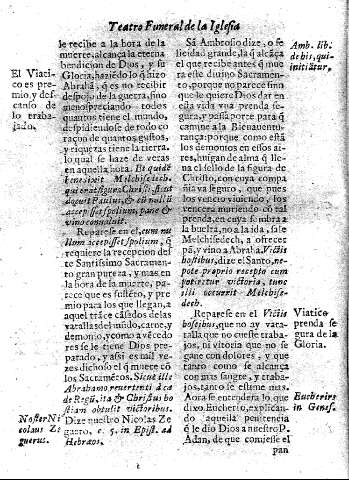 Teatro Funeral de la Iglesia
le recibe a la hora de la
muerte, alcança la eterna
bendicion de Dios, y su
Gloria, haziẽdo lo q̃ hizo
Abrahã, q̃ es no recibir
despojo de la guerra, sino
menospreciando todos
quantos tiene el mundo,
despidiendose de todo co
raçon de quantos gustos,
y riquezas tiene la tierra,
lo qual se haze de veras
en aquella hora. Et quidẽ
benedixit Melchisedech,
qui erat figura Christi, sicut
docuit Paulus, & cũ nollũ
accepisset spolium, pane &
vino convaluit.
Reparese en el, cum nu
llum accepisset spolium, q̃
requiere la recepcion del
te Santissimo Sacramento
gran pureza, y mas en
la hora de la muerte, pa
rece que es sufiero, y pre
mio para los que llegan, a
aquel trãce cãsados de las
vatallas del mundo, carne, y
demonio, y como a vẽcedo
res se le tiene Dios pre
parado, y assi es mil ve
zes dichoso el q̃ muere cõ
los Sacramẽtos. Sicut ille
Abrahamo revertenti à cæ
de Regũ, ita & Christus ho
stiam obtulit victoribus.
Dize nuestro Nicolas Ze
guero, c. 5. in Epist. ad
Hebræos.
El Viati-
co es pre
mio, y des
canso de
lo traba-
jado.
Noster Ni
colaus Ze
guerus.
Sã Ambrosio dize, o fe
licidad grande, la q̃ alcança
el que recibe antes q̃ mue
ra este divino Sacramen-
to, porque no parece sino
que le quiere Dios dar en
esta vida vna prenda se-
gura, y passaporte para q̃
camine a la Bienaventu-
rança: porque como estã
los demonios en essos ai-
res, huigan de alma q̃ lle-
va el sello de la figura de
Christo, con cuya compa
ñia va seguro, que pues
los venció viviendo, los
vencera muriendo cõ tal
prenda, en cuya sõbra a
la buelta, no a la ida, sale
Melchisedech, a ofrecer
pã, y vino a Abrahã. Victis
hostibus, dize el Santo, ne-
pote proprio recepto cum
potiretur victoria, tunc
illi occurrit Melchise-
dech.
Reparese en el Victis
hostibus, que no ay vata-
talla que no cueste traba-
jos, ni vitoria que no se
gane con dolores, y que
tanto se alcança con
mas sangre, y traba-
jos, tanto se estime mas.
Aora se entendera lo que
dixo Eucherio, explican-
do aquella penitencia
q̃ le dio Dios a nuestro P.
Adan, de que comiesse el
pan
Amb. lib.
de his, qui
initiãtur.
Viatico
prenda se
gura de la
Gloria.
Eucherius
in Genes.